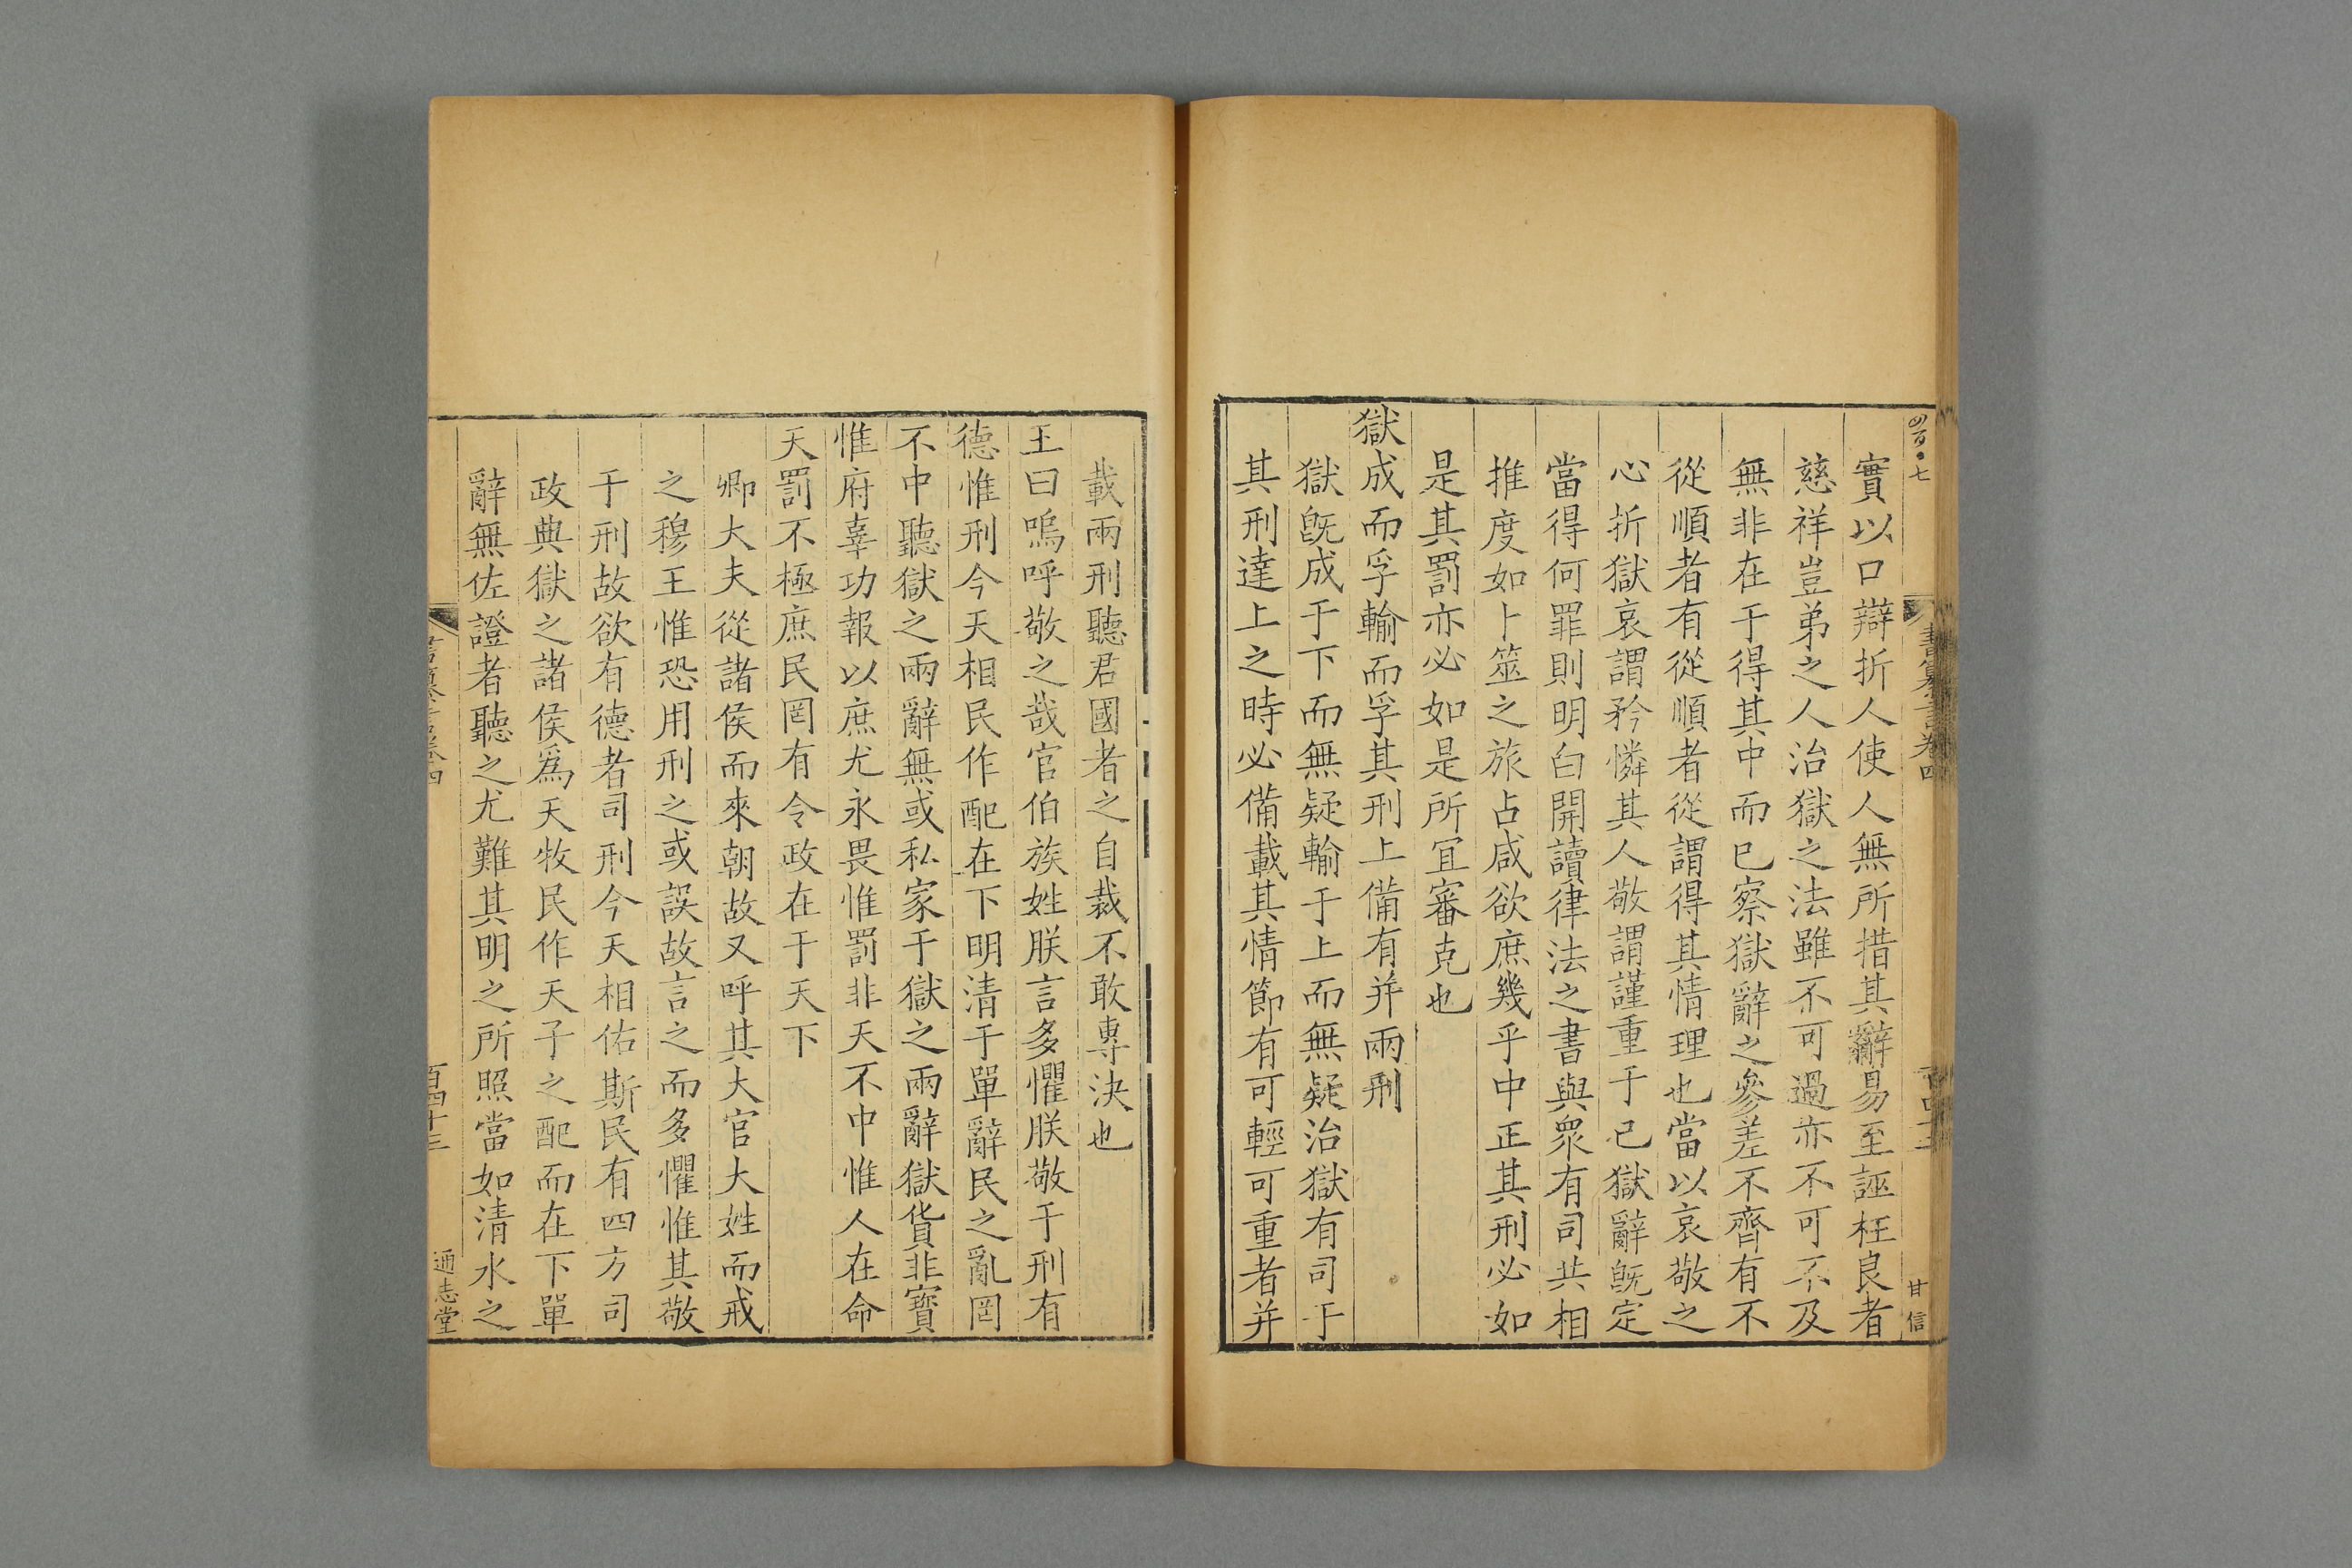 實以口辯折人使人無所措其辭易至誣枉良者
慈祥豈弟之人治獄之法雖不可過亦不可不及
無非在于得其中而已察獄辭之參差不齊有不
從順者有從順者從謂得其情理也當以哀敬之
心折獄哀謂矜憐其人敬謂謹重于己獄辭旣定
當得何罪則明白開讀律法之書與衆有司共相
推度如卜筮之旅占咸欲庶幾乎中正其刑必如
是其罰亦必如是所宜審克也
獄成而孚輸而孚其刑上備有并兩刑
獄旣成于下而無疑輸于上而無疑治獄有司于
其刑達上之時必備載其情節有可輕可重者并
甘信
載兩刑聽君國者之自裁不敢專決也
王曰嗚呼敬之哉官伯族姓朕言多懼朕敬于刑有
德惟刑今天相民作配在下明清于單辭民之亂罔
不中聽獄之兩辭無或私家于獄之兩辭獄貨非寶
惟府辜功報以庶尤永畏惟罰非天不中惟人在命
天罰不極庶民罔有令政在于天下
卿大夫從諸侯而來朝故又呼其大官大姓而戒
之穆王惟恐用刑之或誤故言之而多懼惟其敬
于刑故欲有德者司刑今天相佑斯民有四方司
政典獄之諸侯爲天牧民作天子之配而在下單
辭無佐證者聽之尤難其明之所照當如清水之
百四十三
通志堂